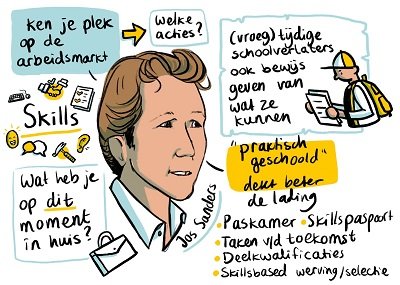 Ken je plek
op de
arbeidsmarkt
Welke
acties?
(vroeg)tijdige
schoolverlaters
ook bewijs
geven van
wat ze
kunnen
Skills
"praktisch
geschoold"
dekt beter
de lading
Wat heb je
op dit
moment
in huis?
Jos Sanders
• Paskamer • Skillspaspoort
• Taken v/d toekomst
• Deelkwalificaties
• Skillsbased werving/selectie